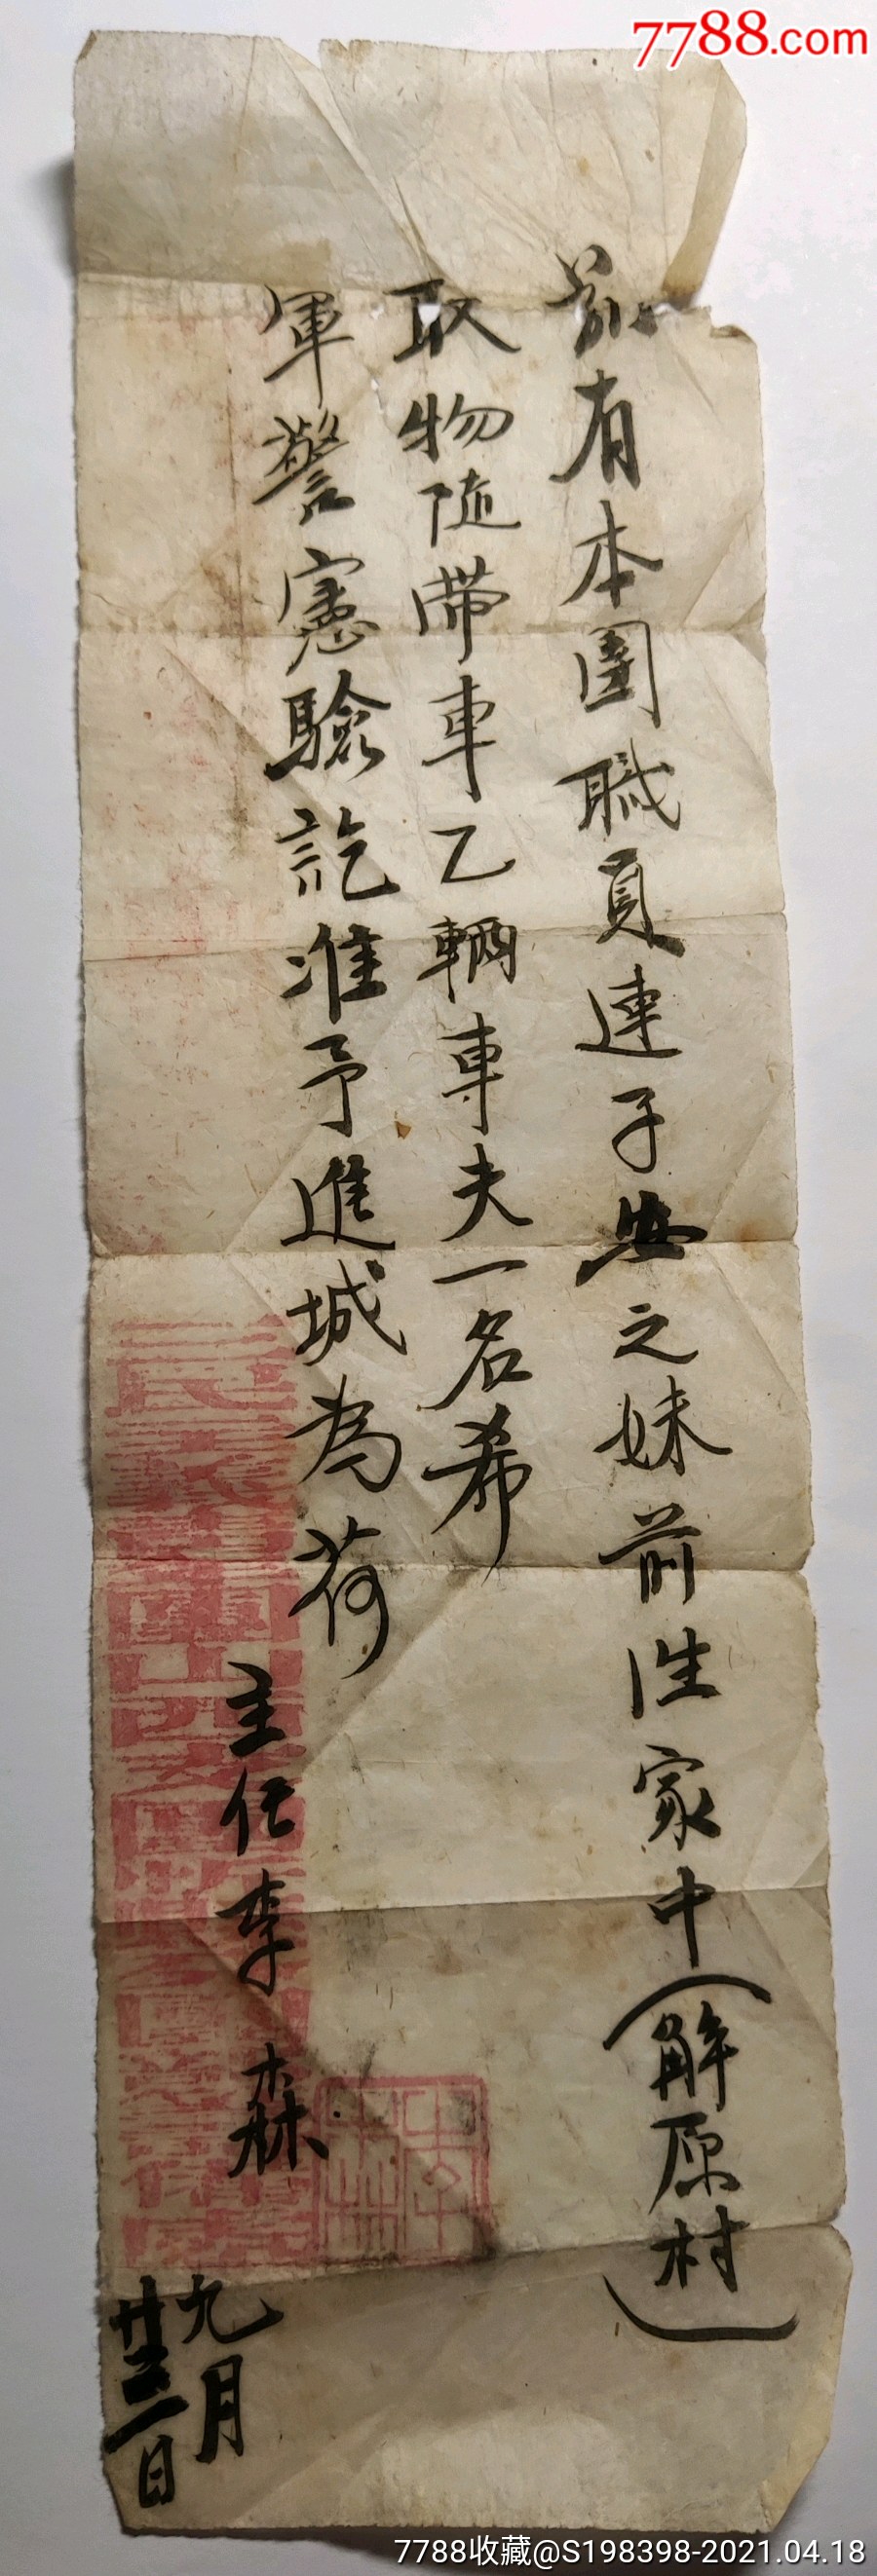 7788.com
茲有本團職員連子安之妹前往家中（解原村）
取物随帶車乙輛車夫一名希
軍警憲驗訖准予進城為荷
主任李森
九月
廿三日
7788收藏@S198398-2021.04.18